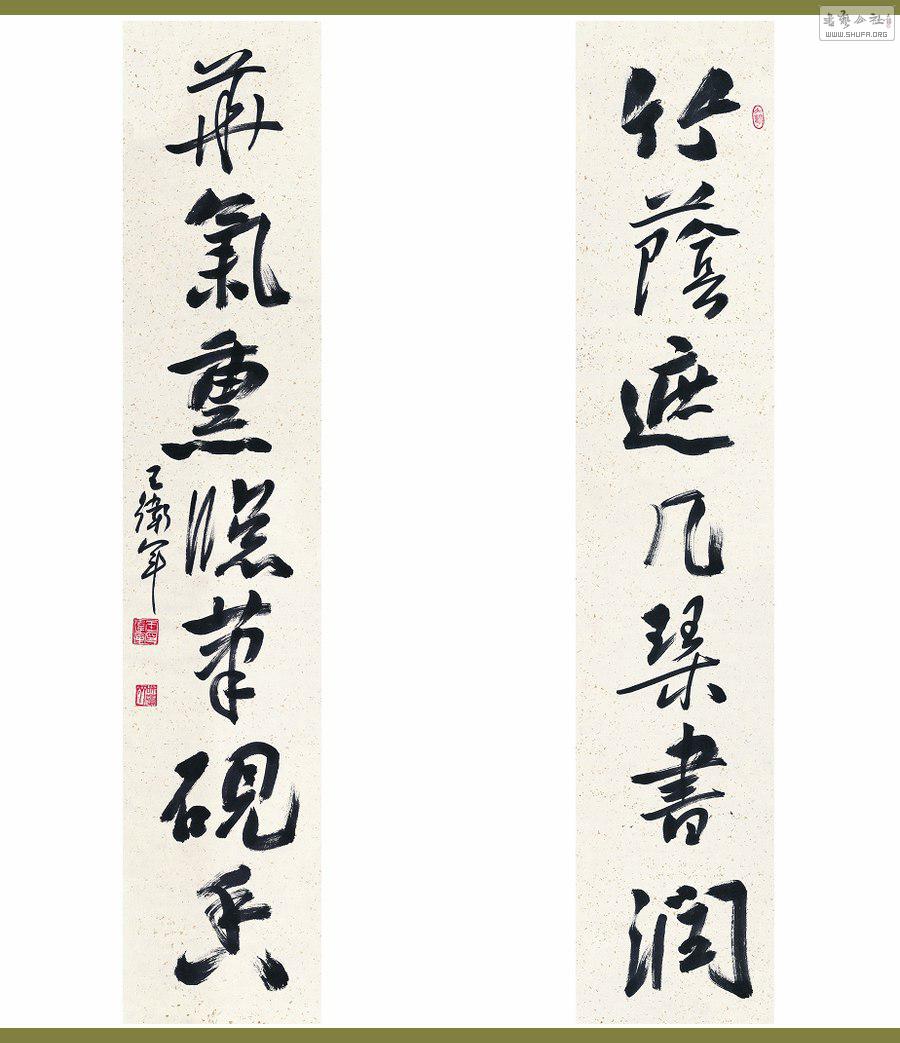 竹蔭遮几琹書潤
華氣熏牕筆硯香
王衛軍
書藝公社
WWW.SHUFA.ORG